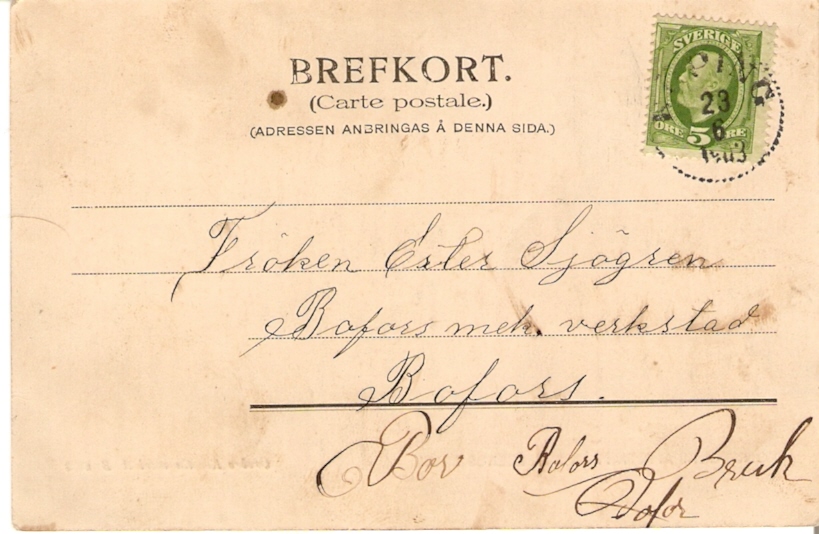 BREFKORT.
(Carte postale.)
(ADRESSEN ANBRINGAS Å DENNA SIDA.)
SVERIGE
PING
23
6
1903
ÖRE 5 ÖRE
Fröken Ester Sjögren
Bofors mek. verkstad
Bofors.
Bor Bofors Bruk